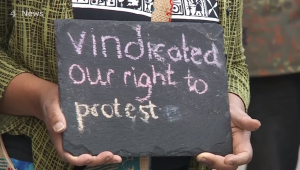 4 News
vindicated
our right to
protest